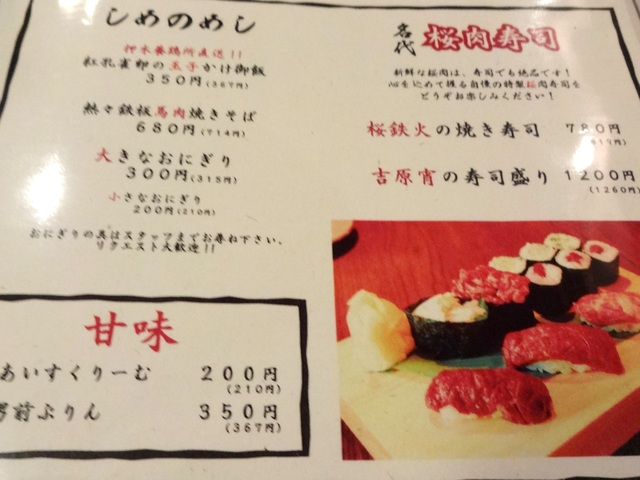 しめのめし
押木養鶏所直送!!
紅孔雀卵の玉子かけ御飯
350円(367円)
熱々鉄板馬肉焼きそば
680円(714円)
大きなおにぎり
300円(315円)
小さなおにぎり
200円(210円)
おにぎりの具はスタッフまでお尋ね下さい、
リクエスト大歓迎!!
甘味
あいすくりーむ
200円
(210円)
男前ぷりん
350円
(367円)
名代 桜肉寿司
新鮮な桜肉は、寿司でも絶品です!
心を込めて握る自慢の特製桜肉寿司を
どうぞお楽しみください!
桜鉄火の焼き寿司 780円
(819円)
吉原宵の寿司盛り 1200円
(1260円)